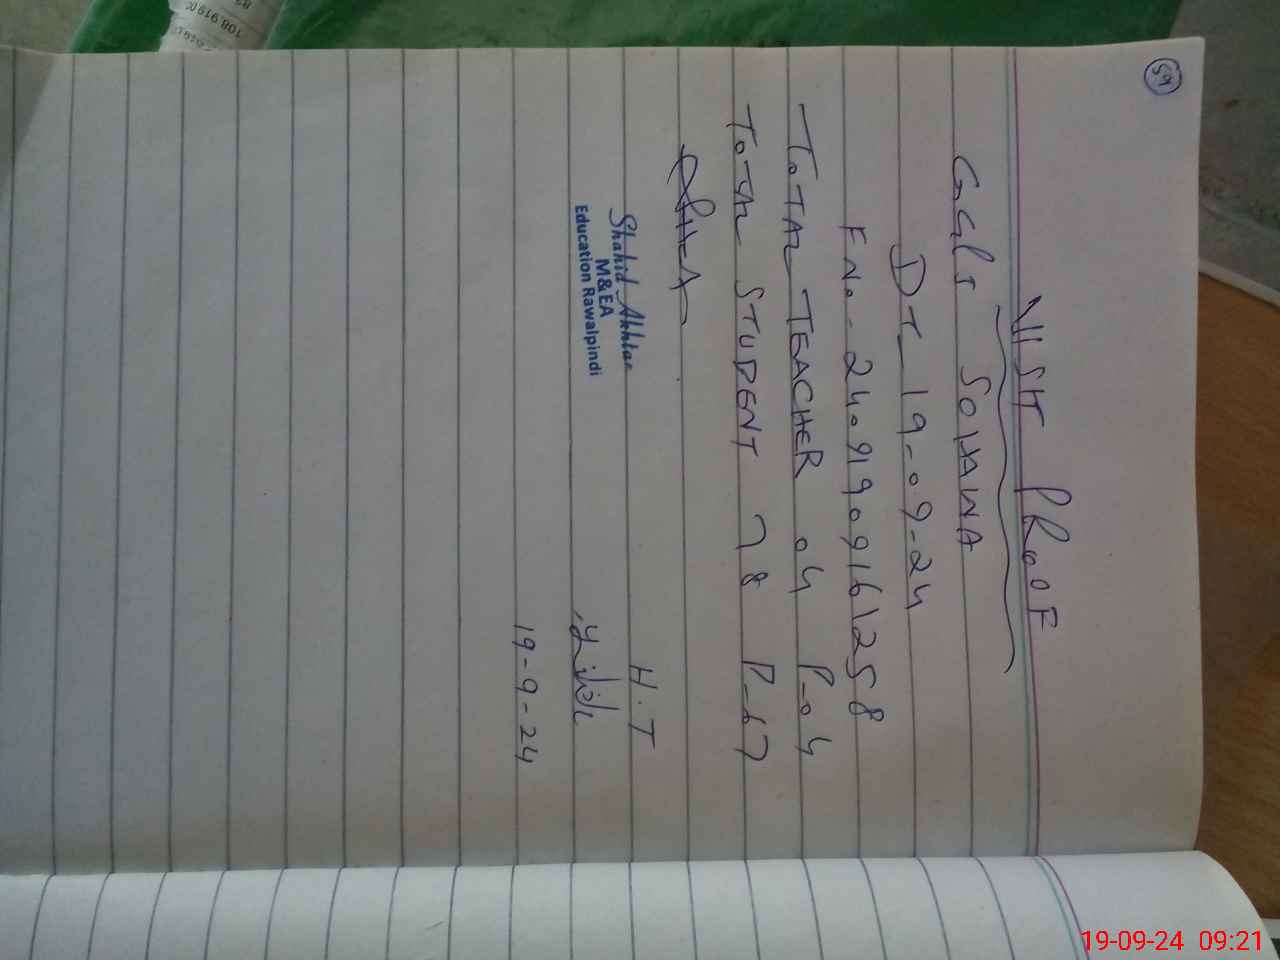 59
VISIT PROOF
GGPS SOHAWA
DT 19-09-24
F No.- 24091909161258
TOTAL TEACHER 04 P-04
TOTAL STUDENT 78 P-67
Shahid Akhtar
M&EA
Education Rawalpindi
H.T
19-9-24
108.919
19-09-24 09:21